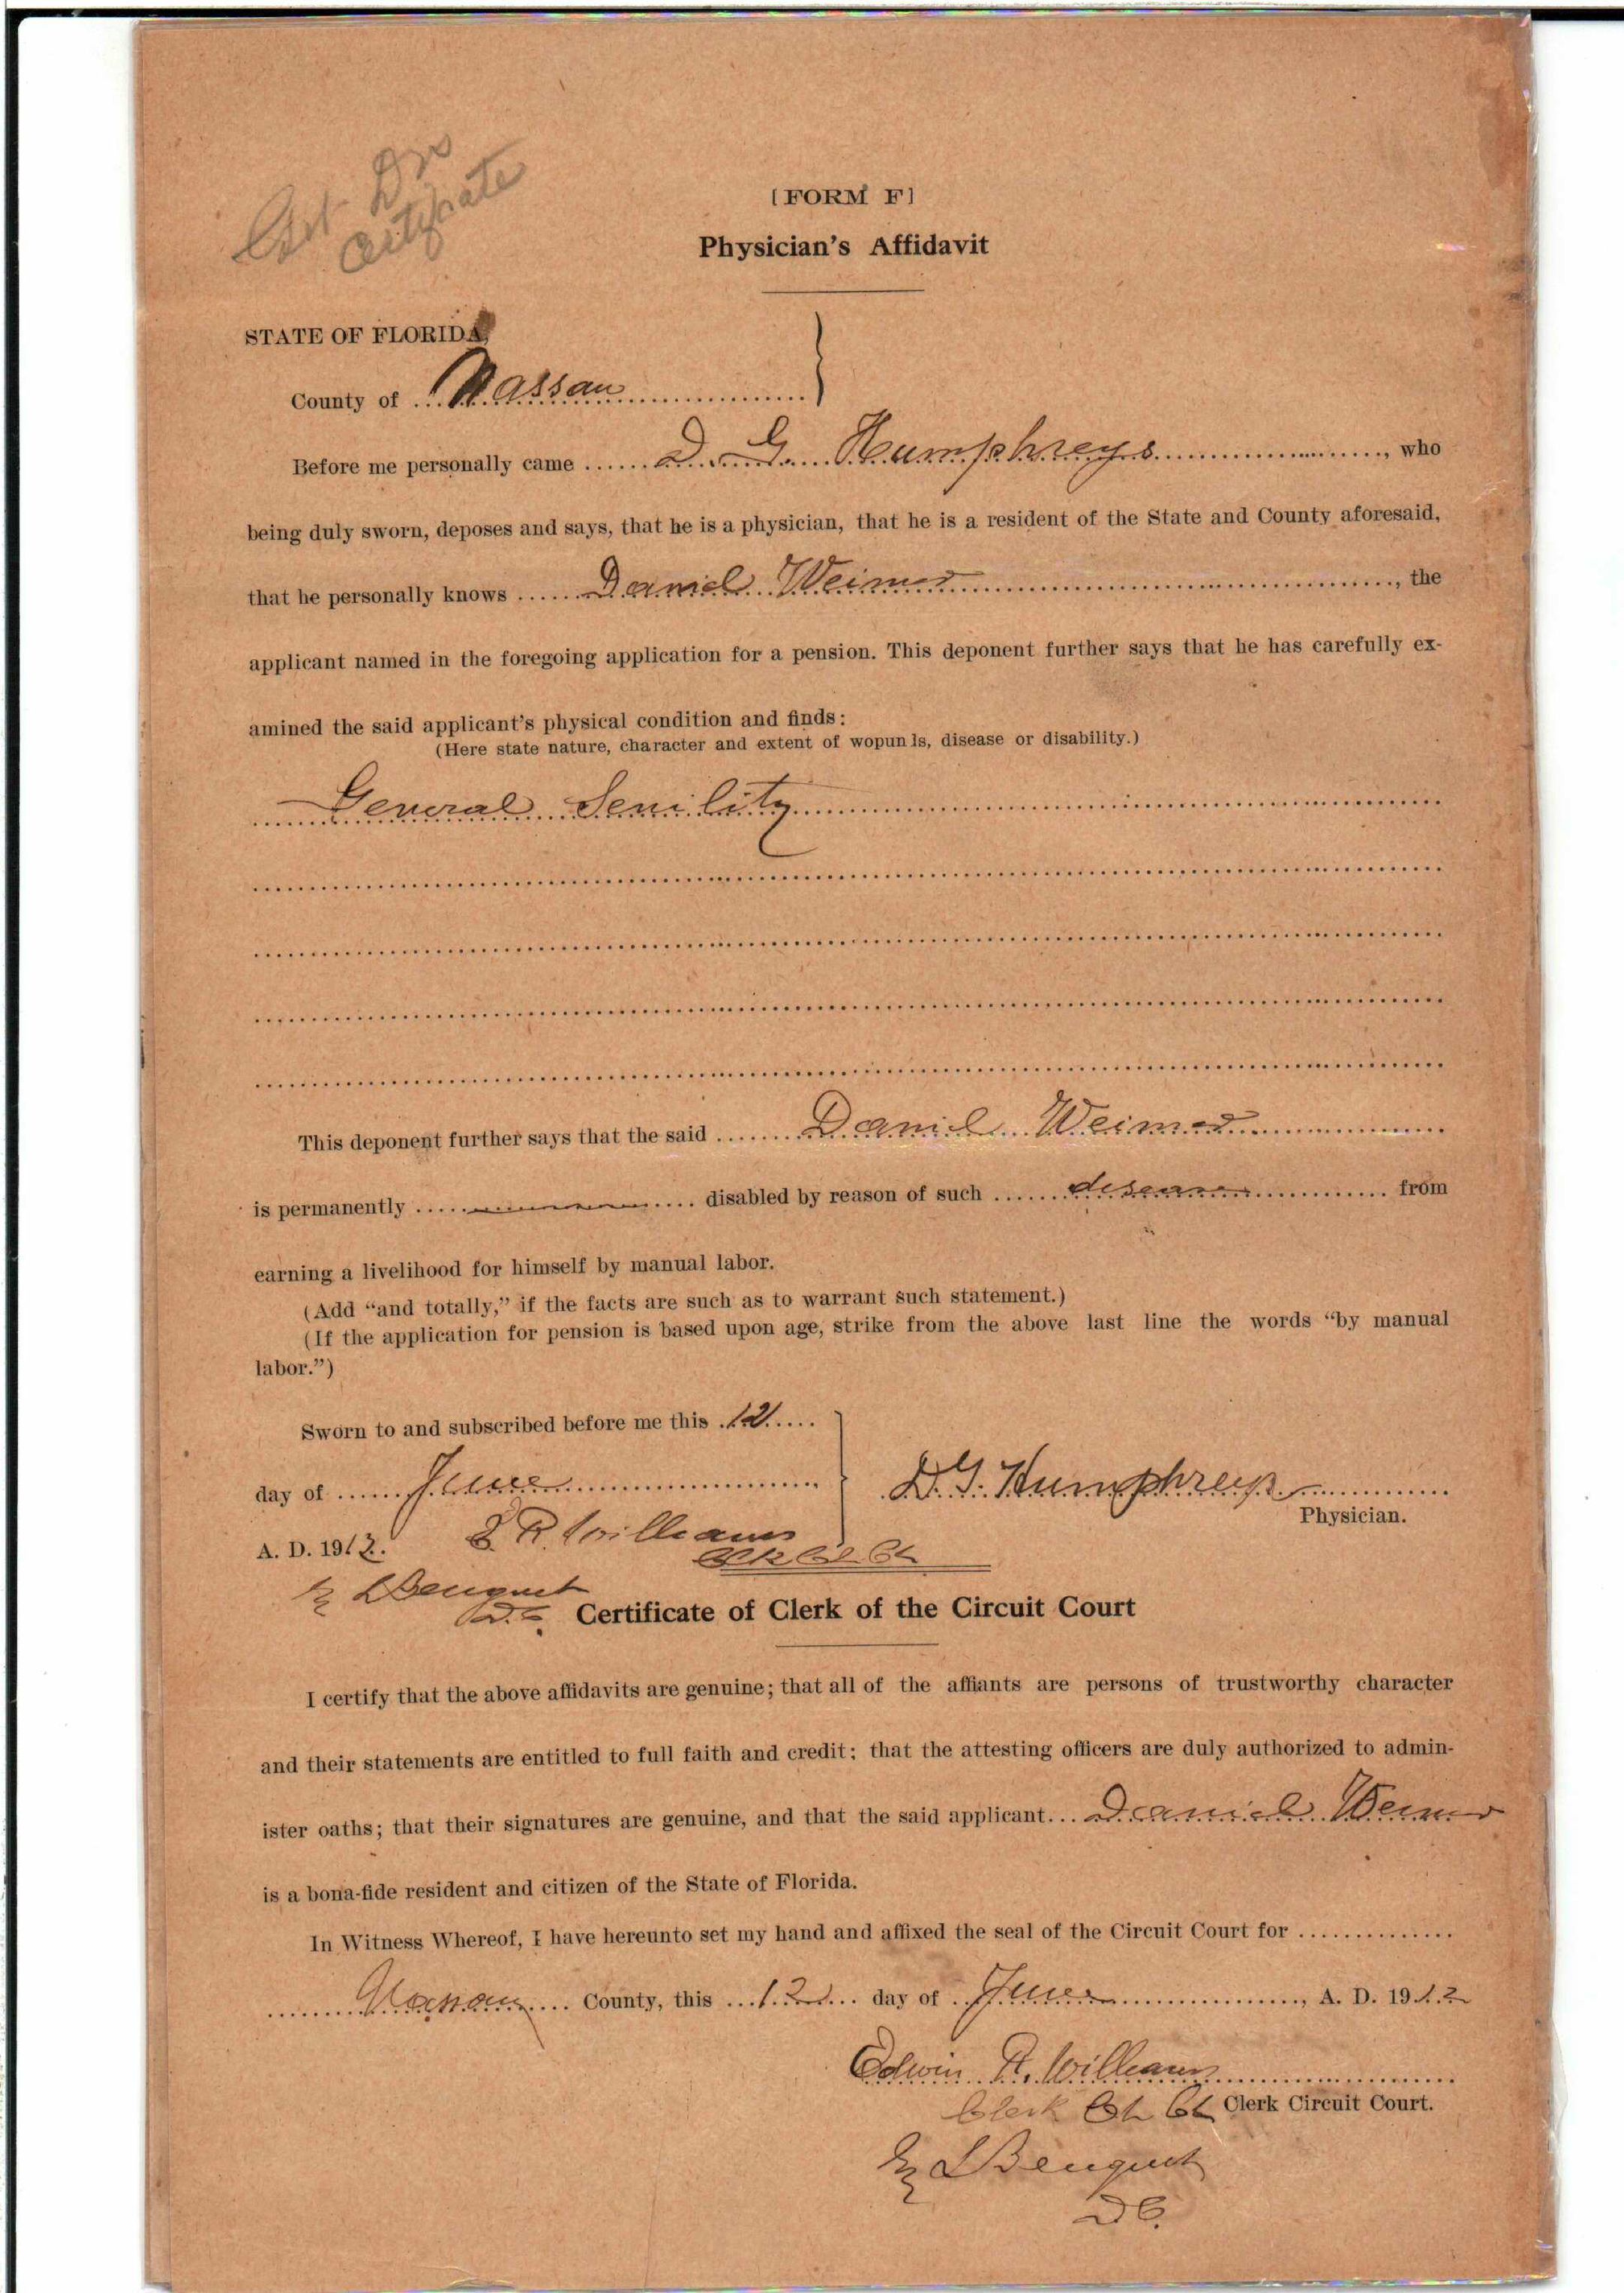 Dr's
certificate
[FORM F]
Physician's Affidavit
STATE OF FLORIDA,
County of Nassau
Before me personally came D. G. Humphreys, who
being duly sworn, deposes and says, that he is a physician, that he is a resident of the State and County aforesaid,
that he personally knows Daniel Weimer, the
applicant named in the foregoing application for a pension. This deponent further says that he has carefully ex-
amined the said applicant's physical condition and finds:
(Here state nature, character and extent of wopunls, disease or disability.)
General Senility
This deponent further says that the said Daniel Weimer
is permanently disabled by reason of such disease from
earning a livelihood for himself by manual labor.
(Add "and totally," if the facts are such as to warrant such statement.)
(If the application for pension is based upon age, strike from the above last line the words "by manual
labor.")
Sworn to and subscribed before me this 12
day of June
D. G. Humphreys
Physician.
A. D. 1912. E R Williams
Clk Cir Ct
By L Benquet
D.C.
Certificate of Clerk of the Circuit Court
I certify that the above affidavits are genuine; that all of the affiants are persons of trustworthy character
and their statements are entitled to full faith and credit; that the attesting officers are duly authorized to admin-
ister oaths; that their signatures are genuine, and that the said applicant Daniel Weimer
is a bona-fide resident and citizen of the State of Florida.
In Witness Whereof, I have hereunto set my hand and affixed the seal of the Circuit Court for
Nassau County, this 12 day of June, A. D. 1912
Edwin R. Williams
Clerk Ct Clerk Circuit Court.
By L Benquet
D C.